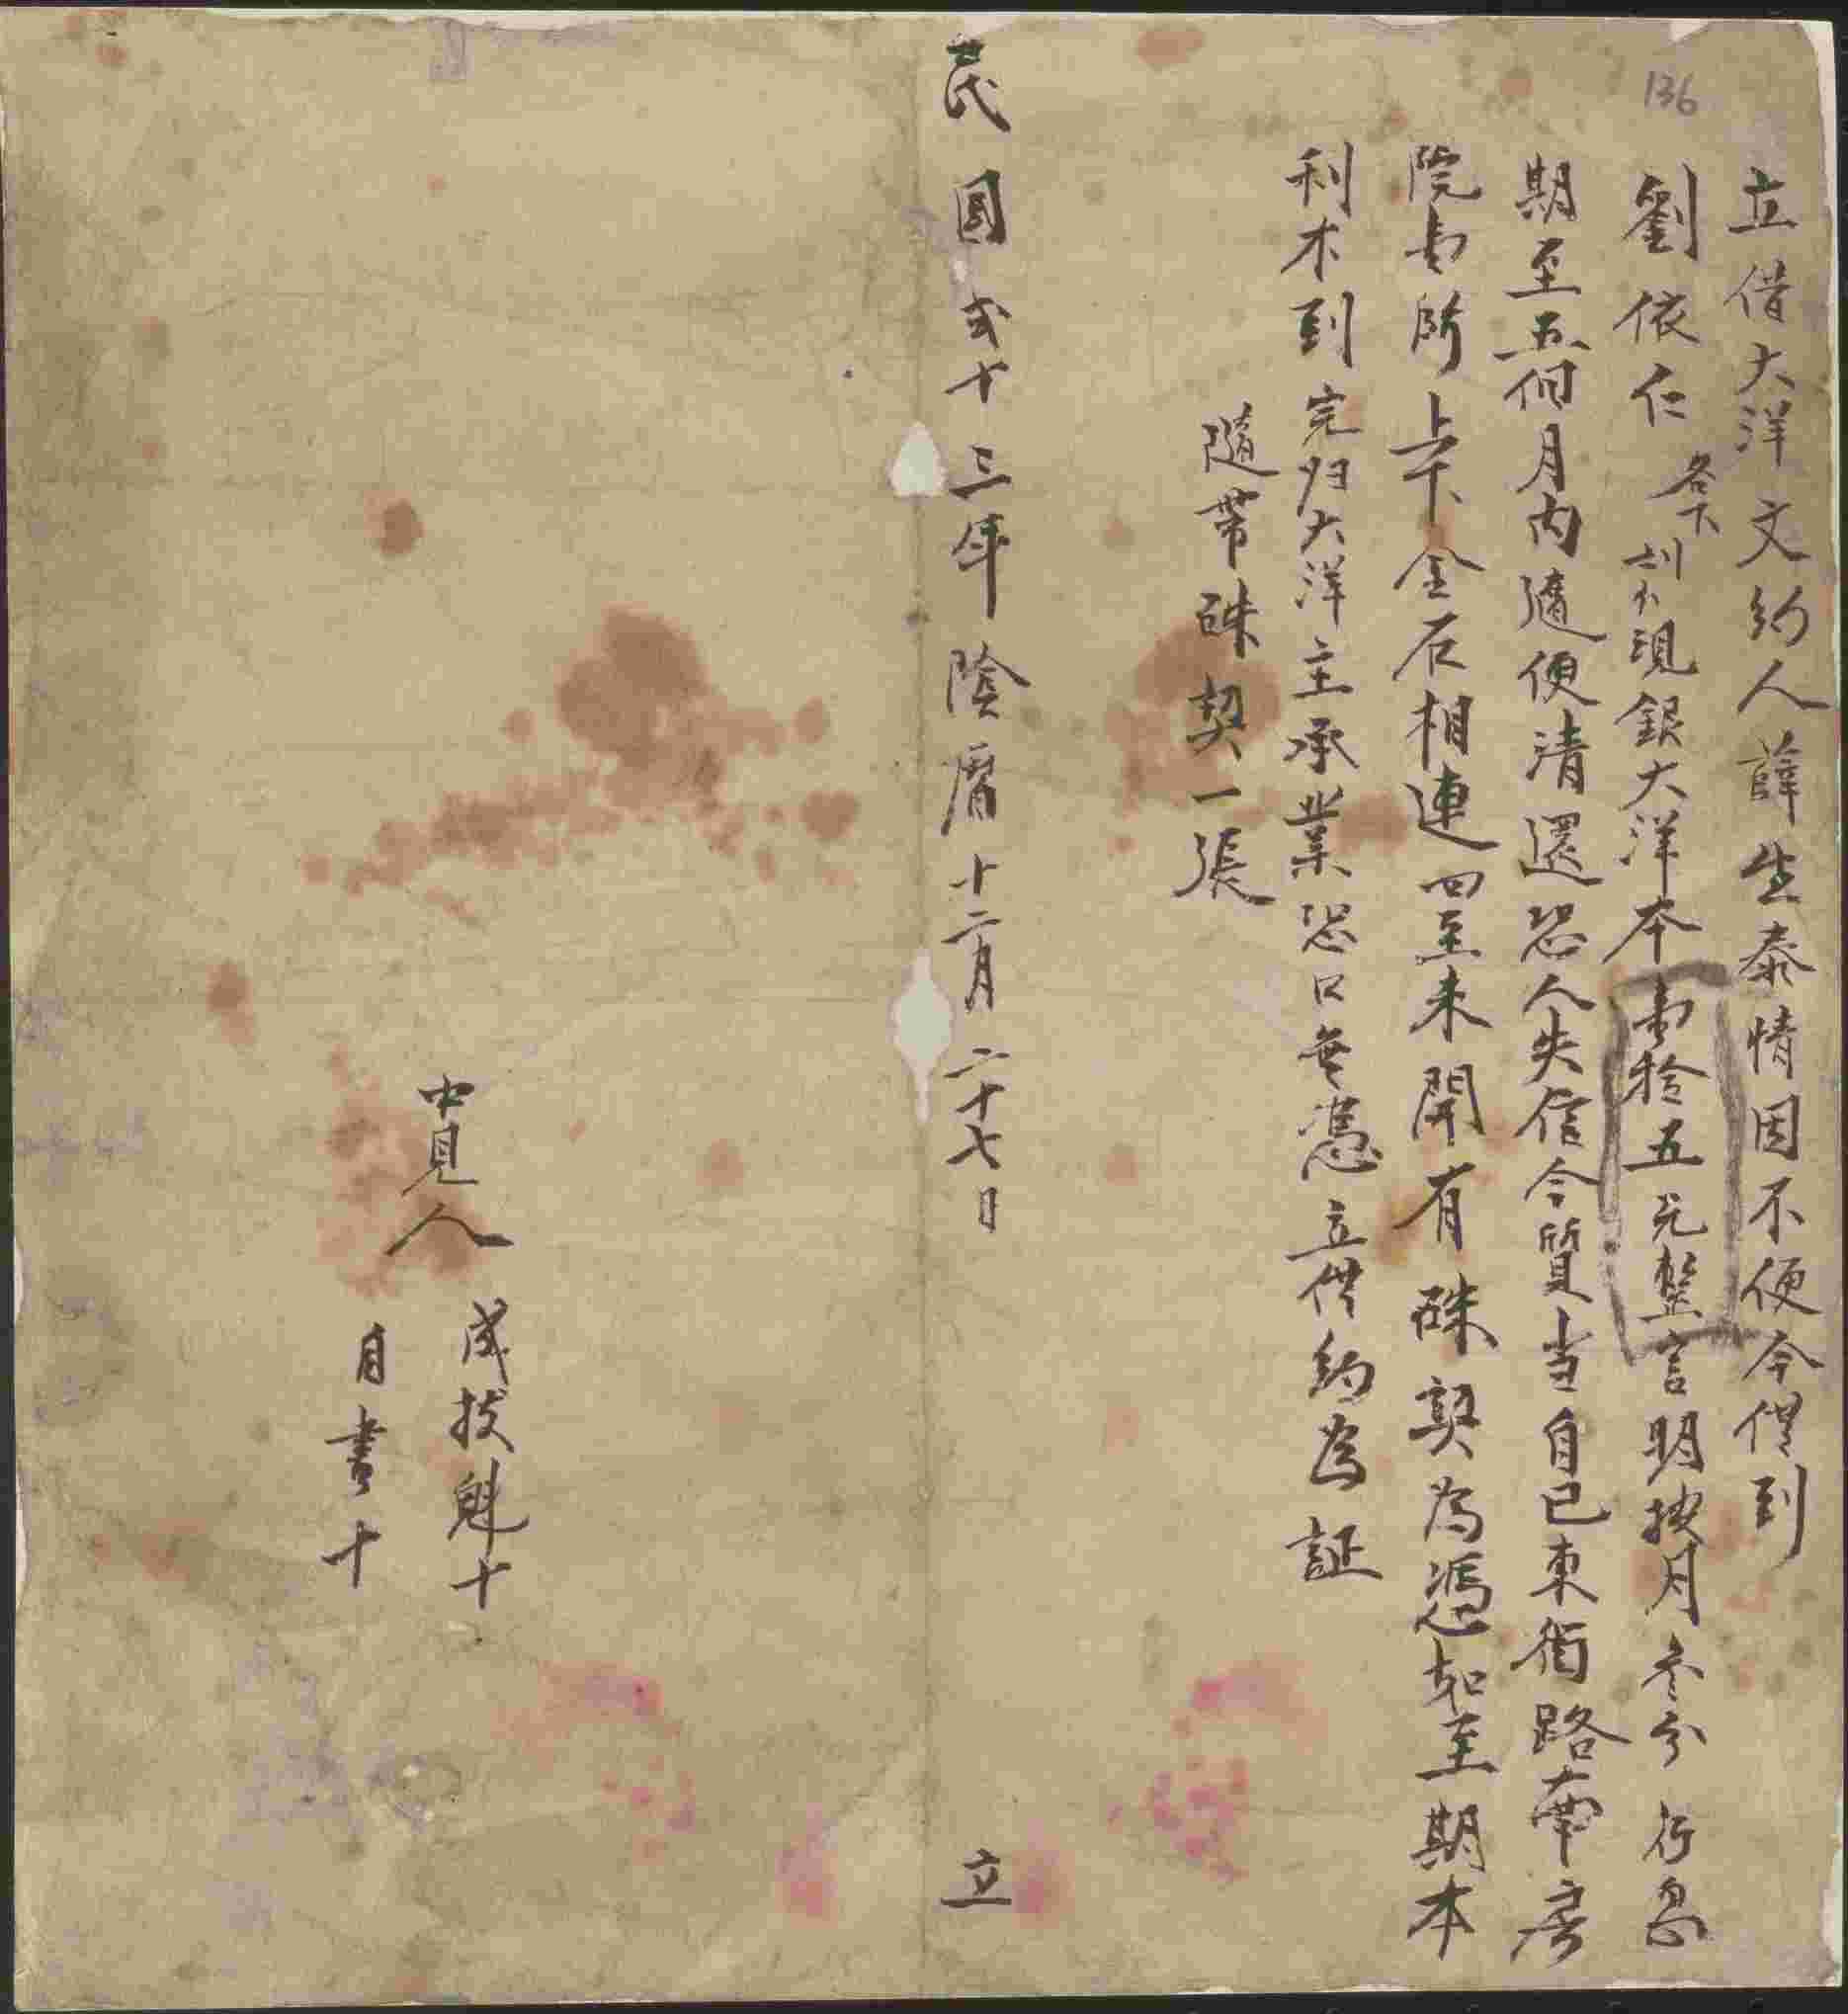 136
立借大洋文約人薛生泰情因不便今借到
劉依仁 各下 現銀大洋本壹拾五元整言明按月叁分行息
期至五個月內隨便清還恐人失信今質当自己東街路南房
院壹所上下金石相連四至未開有硃契為憑如至期本
利不到完归大洋主承業恐口無憑立借約為証
隨帶硃契一張
民國弍十三年陰曆十二月二十七日 立
中見人
成技魁十
自書十